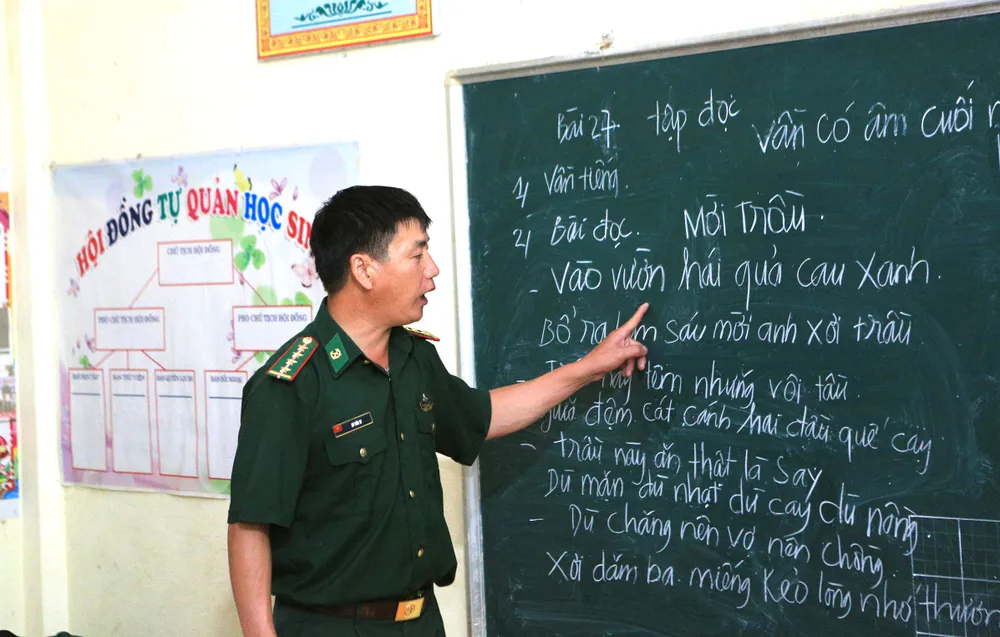 HỘI ĐỒNG TỰ QUẢN HỌC SIN
CHỦ TỊCH HỘI ĐỒNG
PHÓ CHỦ TỊCH HỘI ĐỒNG
PHÓ CHỦ TỊCH HỘI ĐỒNG
BAN THƯ VIỆN
BAN QUYỀN LỢI
BAN ĐỐI NGOẠI
Bài 27. tập đọc
Vần có âm cuối
1/ Vần tiếng.
2/ Bài đọc. Mời trầu.
- Vào vườn hái quả cau xanh.
Bổ ra làm sáu mời anh xơi trầu
này têm những vôi tàu
giữa đệm cát cánh hai đầu quế cay
- trầu này ăn thật là say
Dù mặn dù nhạt dù cay dù nồng.
- Dù chẳng nên vợ nên chồng.
Xơi dăm ba miếng kẻo lòng nhớ thươn